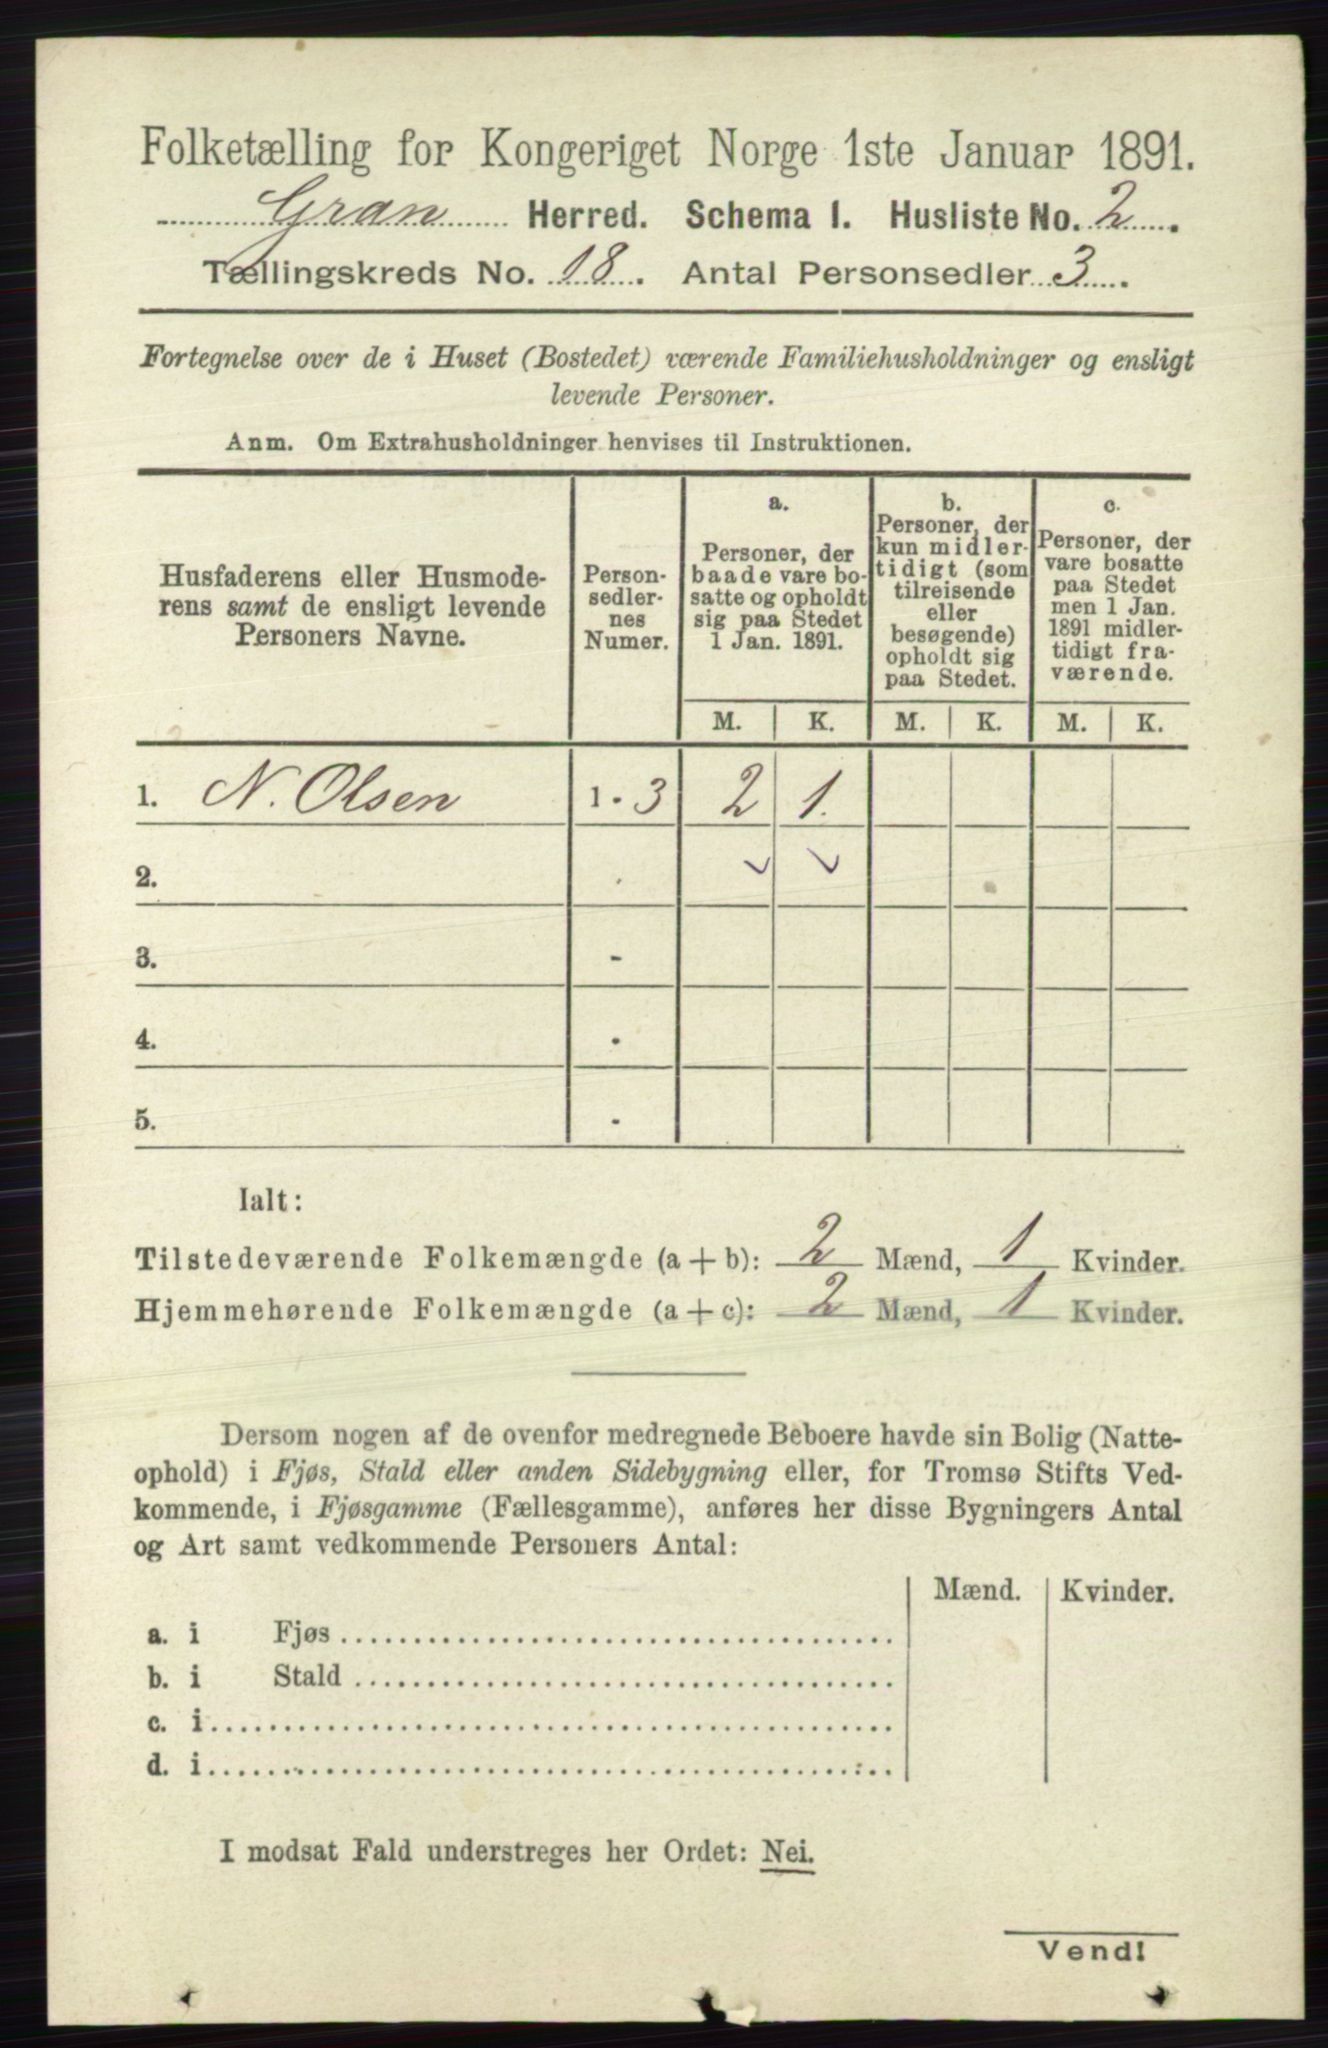 Folketælling for Kongeriget Norge 1ste Januar 1891.
Gran Herred. Schema 1. Husliste No. 2.
Tællingskreds No. 18. Antal Personsedler 3.
Fortegnelse over de i Huset (Bostedet) værende Familiehusholdninger og ensligt
levende Personer.
Anm. Om Extrahusholdninger henvises til Instruktionen.
Husfaderens eller Husmode-
rens samt de ensligt levende
Personers Navne.
Person-
sedler-
nes
Numer.
a.
Personer, der
baade vare bo-
satte og opholdt
sig paa Stedet
1 Jan. 1891.
b.
Personer, der
kun midler-
tidigt (som
tilreisende
eller
besøgende)
opholdt sig
paa Stedet.
c.
Personer, der
vare bosatte
paa Stedet
men 1 Jan.
1891 midler-
tidigt fra-
værende.
M. K. M. K. M. K.
1. N. Olsen 1 - 3 2 1.
2. -
3. -
4. -
5. -
Ialt:
Tilstedeværende Folkemængde (a + b): 2 Mænd, 1 Kvinder.
Hjemmehørende Folkemængde (a + c): 2 Mænd, 1 Kvinder.
Dersom nogen af de ovenfor medregnede Beboere havde sin Bolig (Natte-
ophold) i Fjøs, Stald eller anden Sidebygning eller, for Tromsø Stifts Ved-
kommende, i Fjøsgamme (Fællesgamme), anføres her disse Bygningers Antal
og Art samt vedkommende Personers Antal:
Mænd. Kvinder.
a. i Fjøs
b. i Stald
c. i
d. i
I modsat Fald understreges her Ordet: Nei.
Vend!